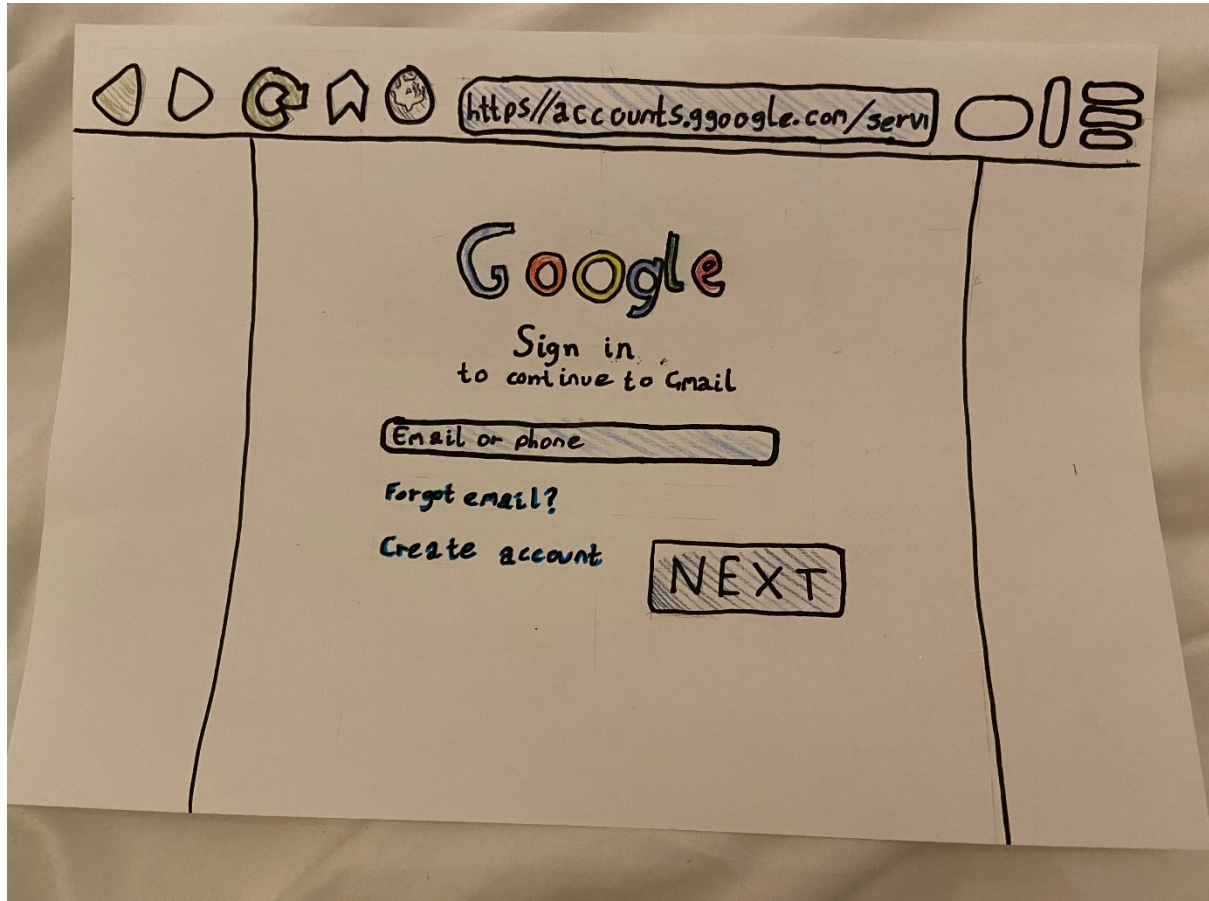 https//accounts.ggoogle.com/servi
Google
Sign in
to continue to Gmail
Email or phone
Forgot email?
Create account
NEXT